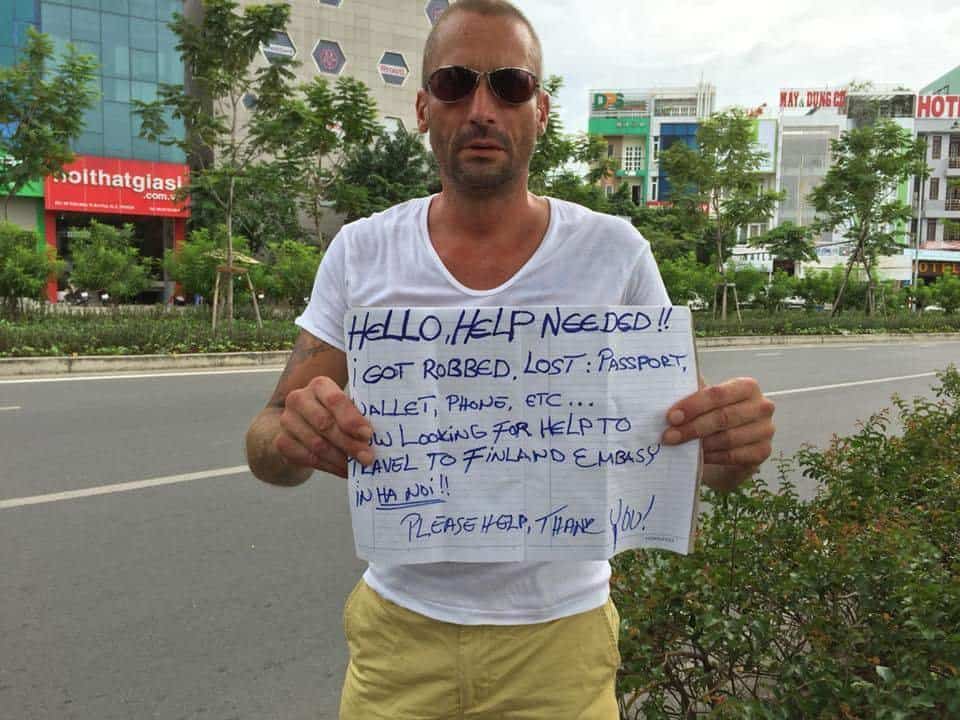 HELLO, HELP NEEDED!!
i GOT ROBBED. LOST: PASSPORT,
WALLET, PHONE, ETC...
LOOKING FOR HELP TO
TRAVEL TO FINLAND EMBASY
iN HA NOI!!
PLEASE HELP, THANK YOU!
noithatgiasi
.com.vn
MAY & DUNG CU
HOT